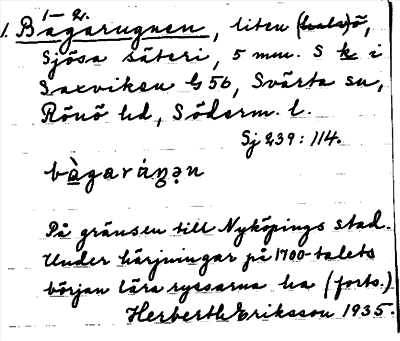 1–2.
1. Bagarugnen, liten (hals)ö,
Sjösa säteri, 5 mm. S k i
Saxviken G 56, Svärta sn,
Rönö hd, Söderm. l.
Sj 239: 114.
bàgaráŋən
På gränsen till Nyköpings stad.
Under härjningar på 1700-talets
början lära ryssarna ha (forts.)
Herberth Eriksson 1935.